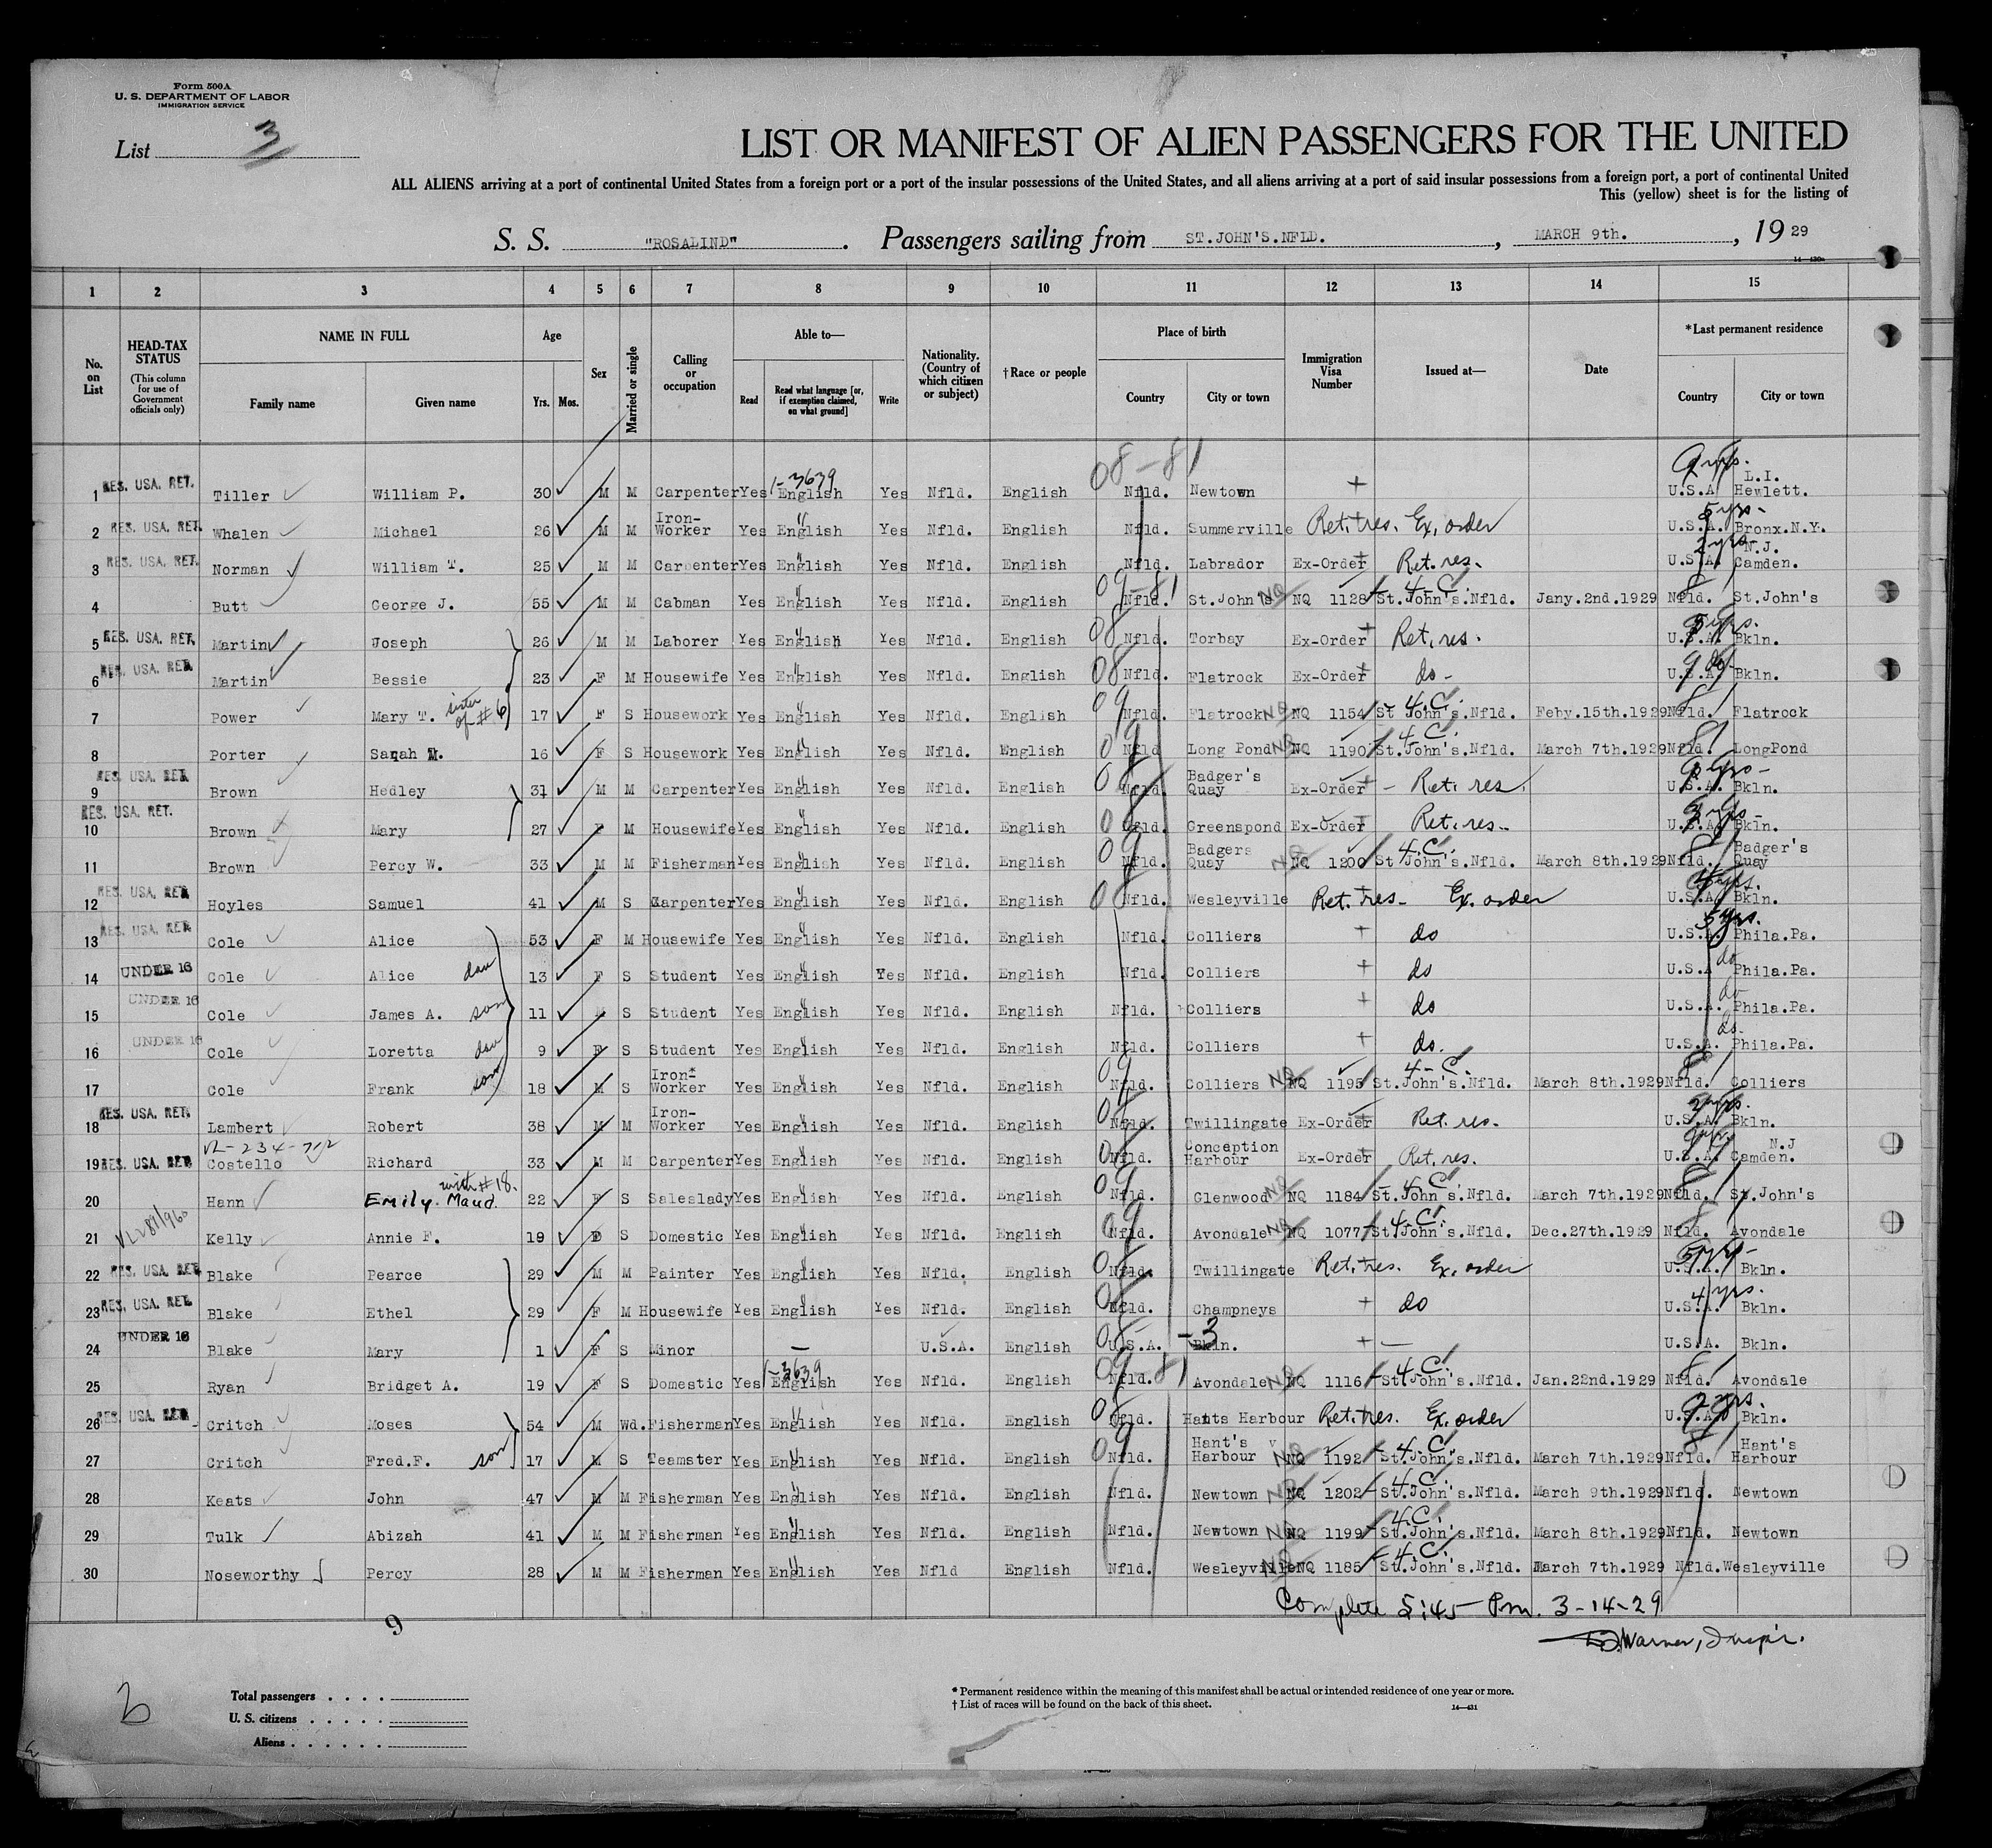 Form 500A
U. S. DEPARTMENT OF LABOR
IMMIGRATION SERVICE
List 3
LIST OR MANIFEST OF ALIEN PASSENGERS FOR THE UNITED
ALL ALIENS arriving at a port of continental United States from a foreign port or a port of the insular possessions of the United States, and all aliens arriving at a port of said insular possessions from a foreign port, a port of continental United
This (yellow) sheet is for the listing of
S. S. "ROSALIND". Passengers sailing from ST.JOHN'S.NFLD., MARCH 9th., 19 29
1 2 3 4 5 6 7 8 9 10 11 12 13 14 15
No. on List
HEAD-TAX STATUS (This column for use of Government officials only)
NAME IN FULL
Family name Given name
Age
Yrs. Mos.
Sex
Married or single
Calling or occupation
Able to—
Read Read what language [or, if exemption claimed, on what ground] Write
Nationality. (Country of which citizen or subject)
†Race or people
Place of birth
Country City or town
Immigration Visa Number
Issued at—
Date
*Last permanent residence
Country City or town
08-81
1 RES. USA. RET. Tiller William P. 30 M M Carpenter Yes 1-3639 English Yes Nfld. English Nfld. Newtown + U.S.A L.I. Hewlett. 9 yrs.
2 RES. USA. RET. Whalen Michael 26 M M Iron-Worker Yes English Yes Nfld. English Nfld. Summerville Ret. res. Ex. order U.S.A. Bronx.N.Y.
3 RES. USA. RET. Norman William T. 25 M M Carpenter Yes English Yes Nfld. English Nfld. Labrador Ex-Order Ret. res. U.S.A. N.J. Camden. 2 yrs
4 Butt George J. 55 M M Cabman Yes English Yes Nfld. English 09-81 Nfld. St.John's NQ 1128 St.John's.Nfld. 4-C. Jany.2nd.1929 Nfld. St.John's
5 RES. USA. RET. Martin Joseph 26 M M Laborer Yes English Yes Nfld. English 08 Nfld. Torbay Ex-Order Ret. res. U.S.A. Bkln.
6 RES. USA. RET. Martin Bessie 23 F M Housewife Yes English Yes Nfld. English 08 Nfld. Flatrock Ex-Order do- U.S.A. Bkln.
7 Power Mary T. sister of #6 17 F S Housework Yes English Yes Nfld. English 09 Nfld. Flatrock NQ 1154 St John's.Nfld. 4-C. Feby.15th.1929 Nfld. Flatrock
8 Porter Sarah M. 16 F S Housework Yes English Yes Nfld. English 09 Nfld Long Pond NQ 1190 St.John's.Nfld. 4-C. March 7th.1929 Nfld. LongPond
9 RES. USA. RET. Brown Hedley 31 M M Carpenter Yes English Yes Nfld. English 08 Nfld. Badger's Quay Ex-Order - Ret. res. U.S.A. Bkln.
10 RES. USA. RET. Brown Mary 27 F M Housewife Yes English Yes Nfld. English 08 Nfld. Greenspond Ex-Order Ret. res. U.S.A. Bkln.
11 Brown Percy W. 33 M M Fisherman Yes English Yes Nfld. English 09 Nfld. Badgers Quay NQ 1200 St John's.Nfld. 4-C. March 8th.1929 Nfld. Badger's Quay
12 RES. USA. RET. Hoyles Samuel 41 M S Carpenter Yes English Yes Nfld. English 08 Nfld. Wesleyville Ret. res. Ex. order U.S.A. Bkln.
13 RES. USA. RET. Cole Alice 53 F M Housewife Yes English Yes Nfld. English Nfld. Colliers + do U.S.A. Phila.Pa. 5 yrs.
14 UNDER 16 Cole Alice dau 13 F S Student Yes English Yes Nfld. English Nfld. Colliers + do U.S.A do Phila.Pa.
15 UNDER 16 Cole James A. son 11 S Student Yes English Yes Nfld. English Nfld. Colliers + do U.S.A. do Phila.Pa.
16 UNDER 16 Cole Loretta dau 9 F S Student Yes English Yes Nfld. English Nfld. Colliers + do. U.S.A. do. Phila.Pa.
17 Cole Frank son 18 M S Iron-Worker Yes English Yes Nfld. English 09 Nfld. Colliers NQ 1195 St.John's.Nfld. 4-C. March 8th.1929 Nfld. Colliers
18 RES. USA. RET. Lambert Robert 38 M M Iron-Worker Yes English Yes Nfld. English 08 Nfld. Twillingate Ex-Order Ret. res. U.S.A. Bkln. 2 yrs.
VL-234-712
19 RES. USA. RET. Costello Richard 33 M M Carpenter Yes English Yes Nfld. English 08 Nfld. Conception Harbour Ex-Order Ret. res. U.S.A. N.J Camden.
20 Hann Emily. Maud. with #18. 22 F S Saleslady Yes English Yes Nfld. English 09 Nfld. Glenwood NQ 1184 St.John's.Nfld. 4-C. March 7th.1929 Nfld. St.John's
21 Kelly Annie F. 19 F S Domestic Yes English Yes Nfld. English 09 Nfld. Avondale NQ 1077 St.John's.Nfld. 4-C. Dec.27th.1929 Nfld. Avondale
22 RES. USA. RET. Blake Pearce 29 M M Painter Yes English Yes Nfld. English 08 Nfld. Twillingate Ret. res. Ex. order U.S.A. Bkln. 5 yrs-
23 RES. USA. RET. Blake Ethel 29 F M Housewife Yes English Yes Nfld. English 08 Nfld. Champneys + do U.S.A. Bkln. 4 yrs.
24 UNDER 16 Blake Mary 1 F S Minor — U.S.A. English 08 U.S.A. -3 Bkln. + — U.S.A. Bkln.
25 Ryan Bridget A. 19 F S Domestic Yes 1-3639 English Yes Nfld. English 09 81 Nfld. Avondale NQ 1116 St.John's.Nfld. 4-C. Jan.22nd.1929 Nfld. Avondale
26 RES. USA. RET. Critch Moses 54 M Wd. Fisherman Yes English Yes Nfld. English 08 Nfld. Hants Harbour Ret. res. Ex. order U.S.A. Bkln. 2 yrs.
27 Critch Fred.F. son 17 M S Teamster Yes English Yes Nfld. English 09 Nfld. Hant's Harbour NQ 1192 St.John's.Nfld. 4-C. March 7th.1929 Nfld. Hant's Harbour
28 Keats John 47 M M Fisherman Yes English Yes Nfld. English Nfld. Newtown NQ 1202 St.John's.Nfld. 4-C. March 9th.1929 Nfld. Newtown
29 Tulk Abizah 41 M M Fisherman Yes English Yes Nfld. English Nfld. Newtown NQ 1199 St.John's.Nfld. 4-C. March 8th.1929 Nfld. Newtown
30 Noseworthy Percy 28 M M Fisherman Yes English Yes Nfld English Nfld. Wesleyville NQ 1185 St.John's.Nfld. 4-C. March 7th.1929 Nfld. Wesleyville
Complete 5:45 Pm. 3-14-29
Warner, Insp'r.
9
Total passengers . . . .
U. S. citizens . . . . .
Aliens . . . . . .
* Permanent residence within the meaning of this manifest shall be actual or intended residence of one year or more.
† List of races will be found on the back of this sheet.
14—431